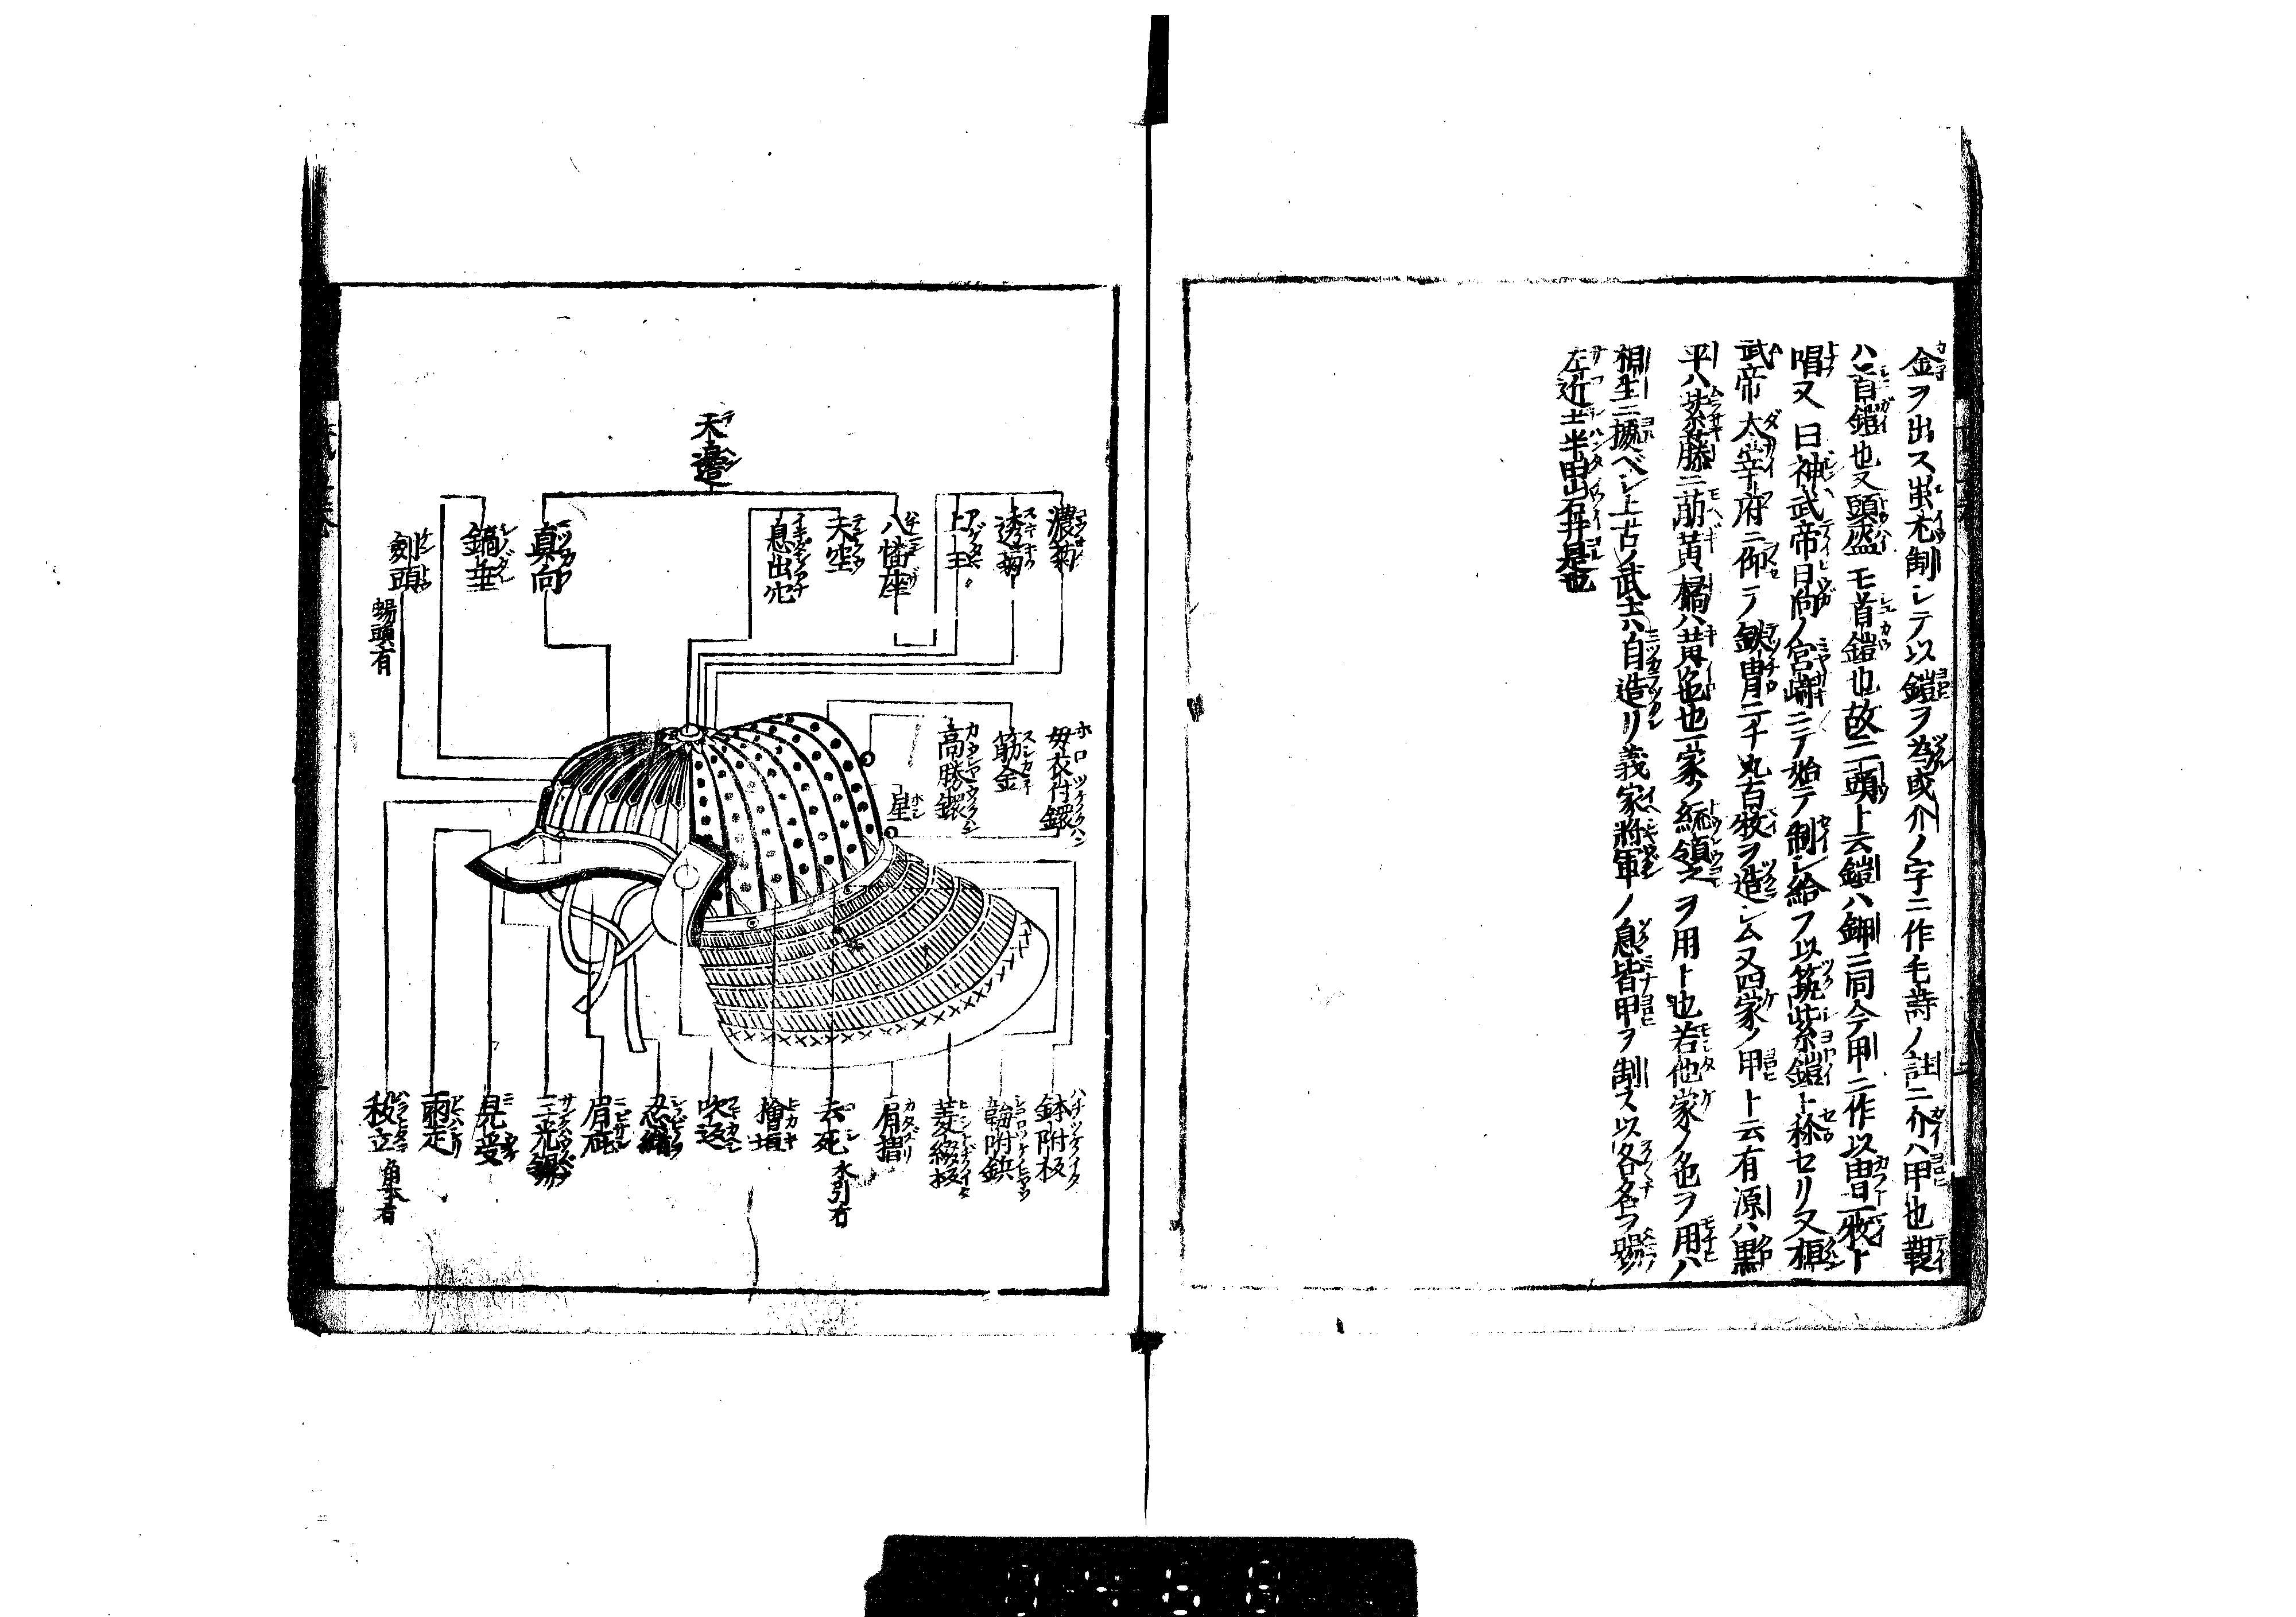 金ヲ出ス蚩尤制シテ以鎧ヲ為或介ノ字ニ作毛詩ノ註ニ介ハ甲也鞮
ハ首鎧也又頭盔モ首鎧也故ニ頭ト云鎧ハ鉀ニ同今甲ニ作以冑一牧ト
唱又曰神武帝日向ノ宮崎ニテ始テ制シ給フ以筑紫鎧ト称セリ又桓
武帝太宰府ニ仰テ鉄冑二千九百牧ヲ造シム又四家ノ甲ト云有源ハ黒
平ハ紫藤ニ萠黄橘ハ黄色也一家ノ統領之ヲ用ト也若他家ノ色ヲ用ハ
相生ニ據ベシ上古ノ武士ハ自造リ義家将軍ノ息皆甲ヲ制ス以各名ヲ賜
左近士半田出石井是也
天邊
濃菊
透菊
上玉
八幡座
天空
息出穴
真向
錣垂
剣頭
蜴頭有
母衣付鐶
筋金
高勝鐶
星
鉢附板
鞠附鋲
菱縫板
肩摺
去死
水引右
檜垣
吹返
忍緒
眉庇
三光鋲
見受
雨走
祓立
角本有